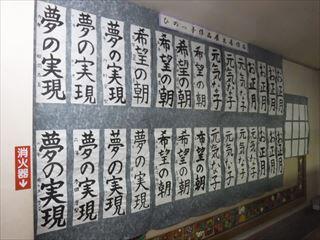 ひのっ子作品展
お正月
お正月
お正月
元気な子
元気な子
元気な子
希望の朝
希望の朝
希望の朝
希望の朝
夢の実現
夢の実現
夢の実現
お正月
お正月
お正月
元気な子
元気な子
元気な子
希望の朝
希望の朝
希望の朝
希望の朝
夢の実現
夢の実現
夢の実現
消火器